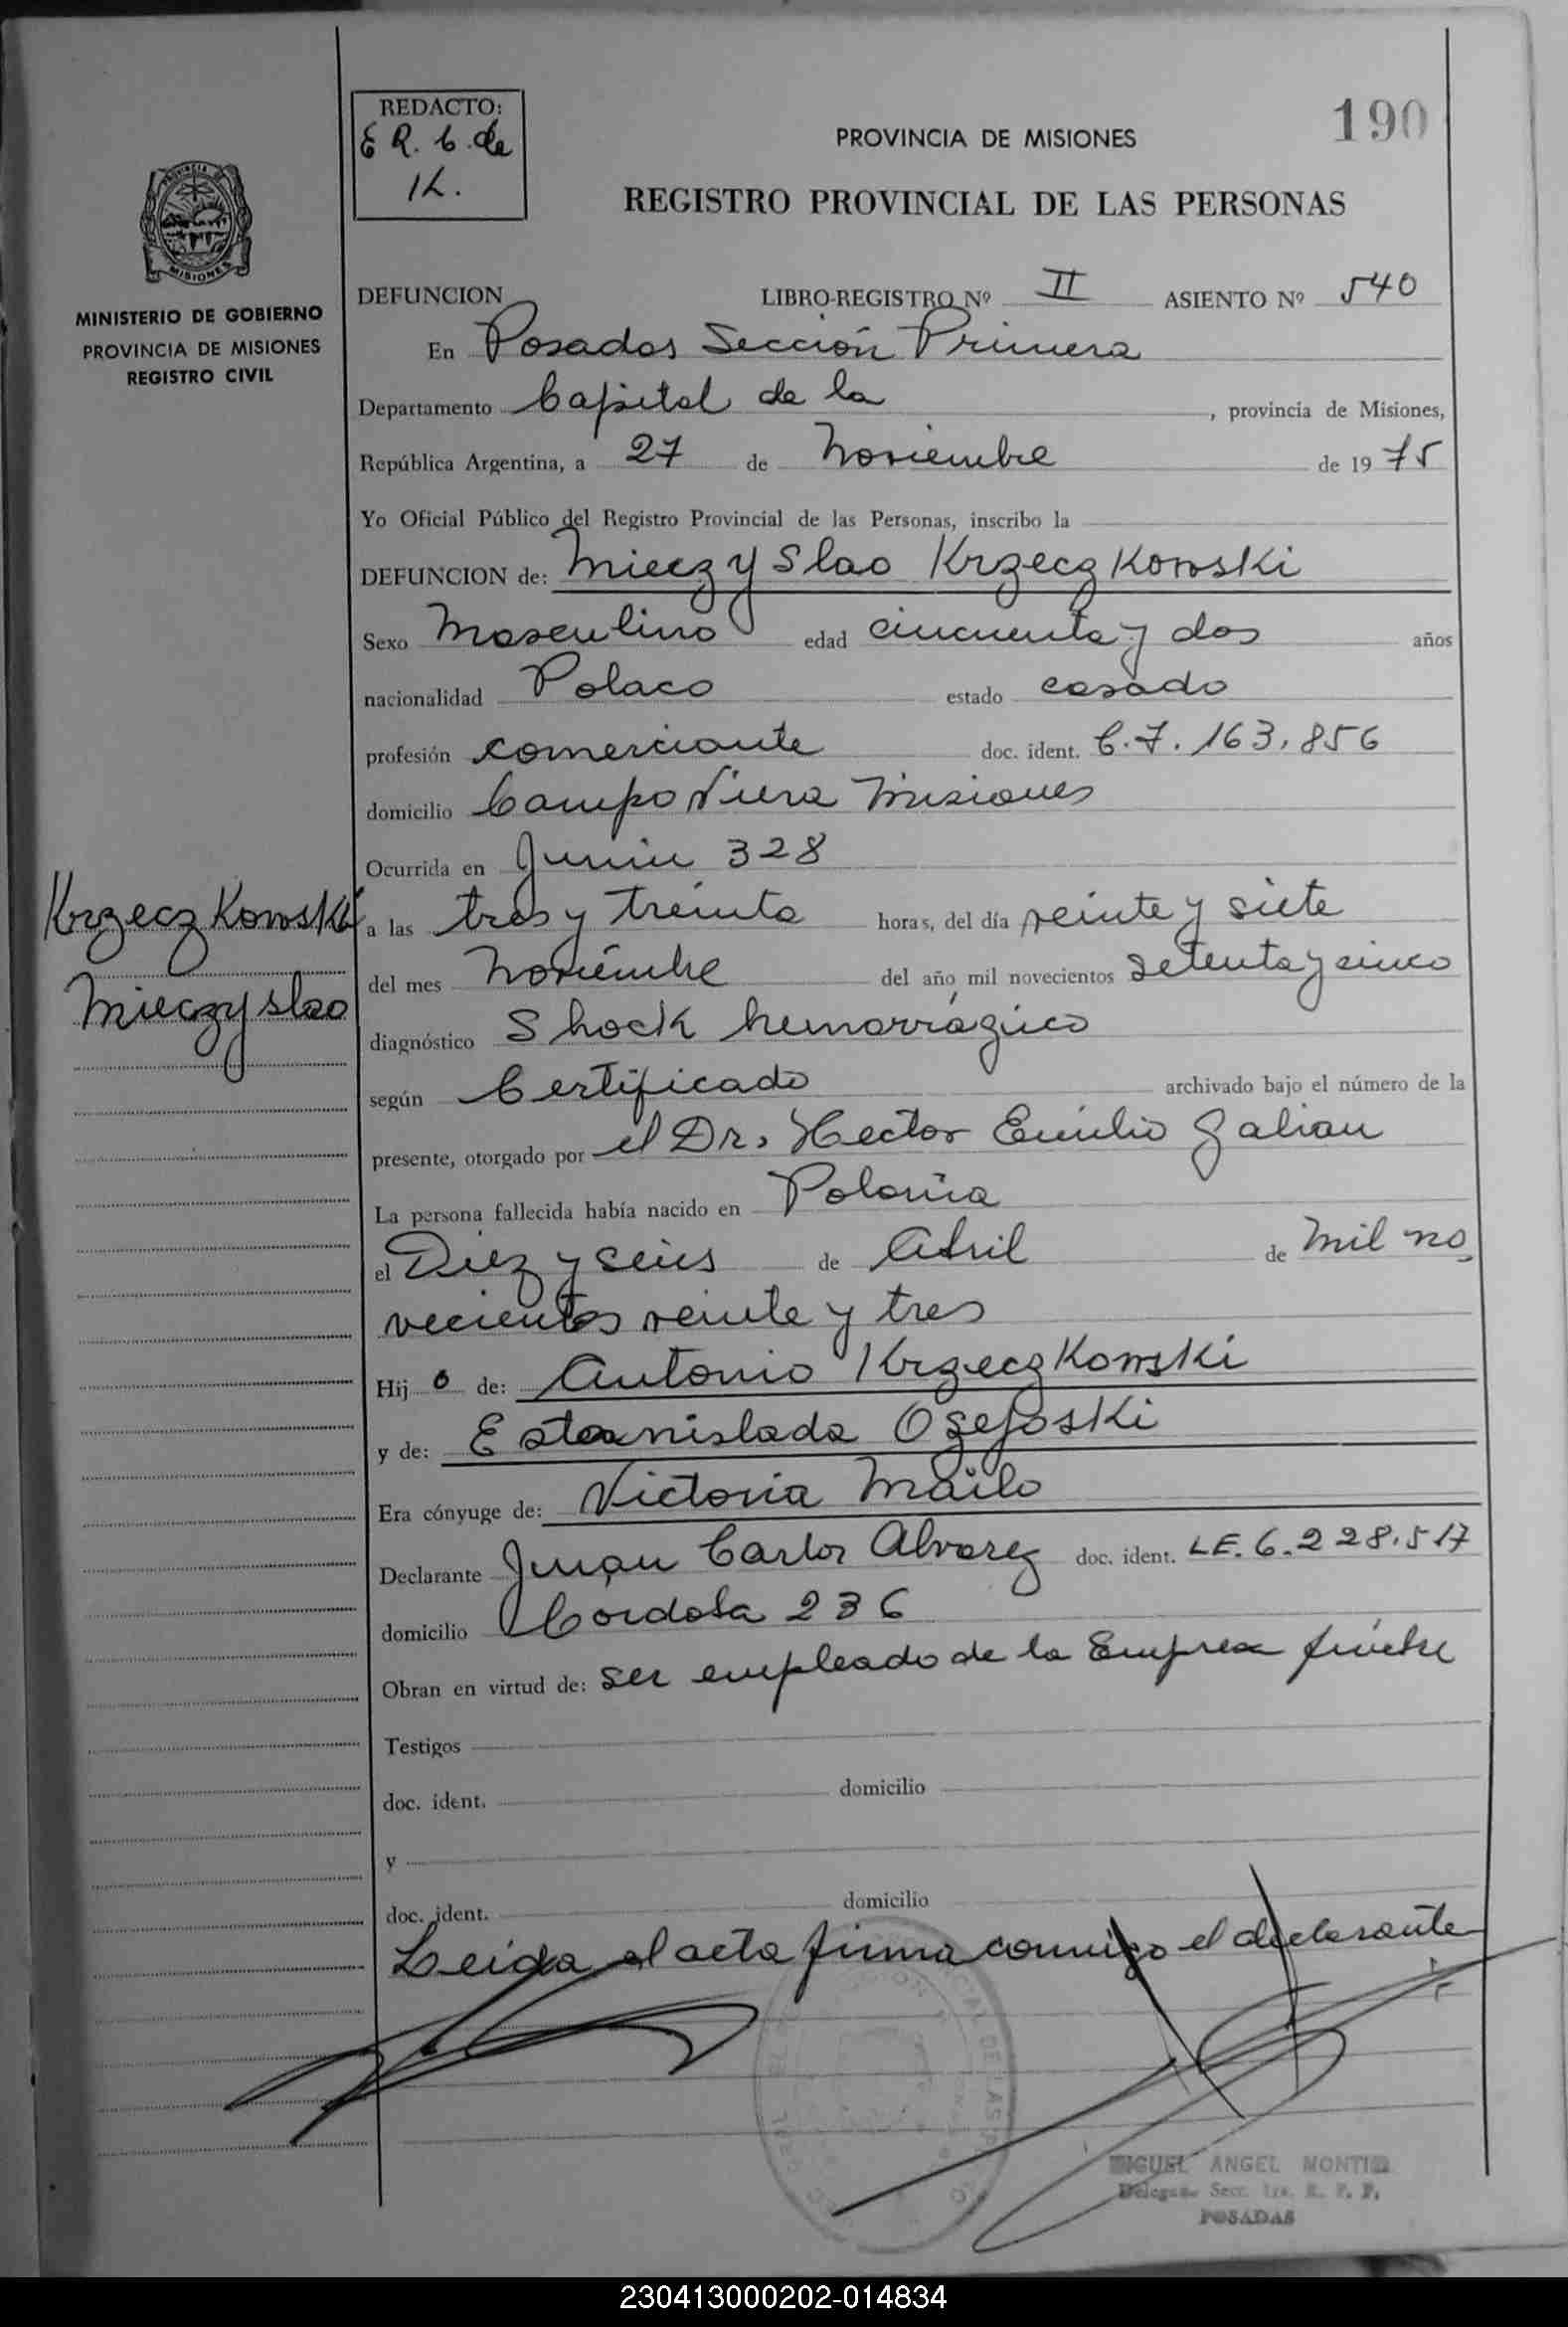 190
REDACTO:
E R. C. de
K.
PROVINCIA DE MISIONES
REGISTRO PROVINCIAL DE LAS PERSONAS
MISIONES
MINISTERIO DE GOBIERNO
PROVINCIA DE MISIONES
REGISTRO CIVIL
DEFUNCION LIBRO-REGISTRO Nº II ASIENTO Nº 540
En Posadas Sección Primera
Departamento Capital de la , provincia de Misiones,
República Argentina, a 27 de Noviembre de 1975
Yo Oficial Público del Registro Provincial de las Personas, inscribo la
DEFUNCION de: Mieczyslao Krzeczkowski
Sexo Masculino edad cincuenta y dos años
nacionalidad Polaco estado casado
profesión comerciante doc. ident. C.7.163.856
domicilio Campo Viera Misiones
Ocurrida en Junín 328
Krzeczkowski
a las tres y treinta horas, del día veinte y siete
Mieczyslao
del mes Noviembre del año mil novecientos setenta y cinco
diagnóstico Shock hemorrágico
según Certificado archivado bajo el número de la
presente, otorgado por el Dr. Hector Emilio Galian
La persona fallecida había nacido en Polonia
el Diez y seis de Abril de mil no
vecientos veinte y tres
Hij o de: Antonio Krzeczkowski
y de: Estanislada Ozefoski
Era cónyuge de: Victoria Mailo
Declarante Juan Carlos Alvarez doc. ident. LE. 6.228.517
domicilio Cordoba 236
Obran en virtud de: ser empleado de la Empresa fúnebre
Testigos
doc. ident. domicilio
y
doc. ident. domicilio
Leida el acta firma conmigo el declarante
MIGUEL ANGEL
POSADAS
230413000202-014834